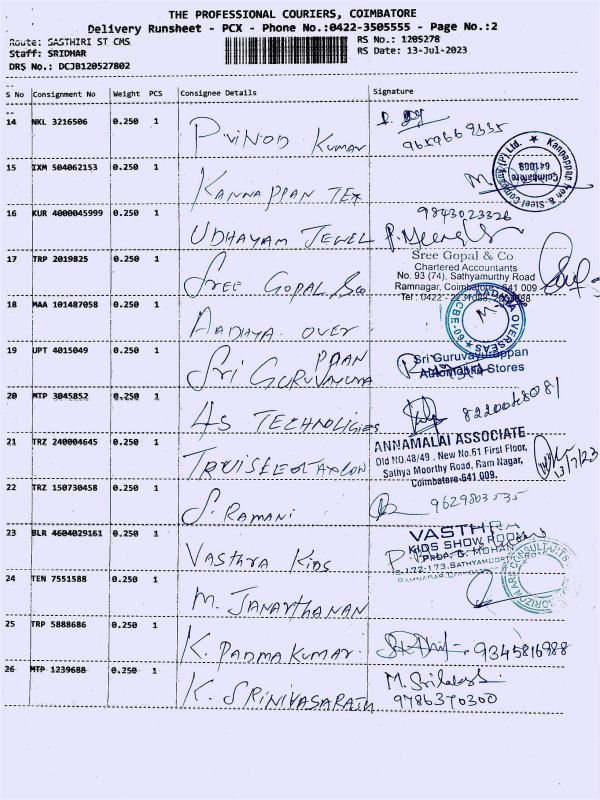 THE PROFESSIONAL COURIERS, COIMBATORE
Delivery Runsheet - PCX - Phone No.:0422-3505555 - Page No.:2
Route: SASTHIRI ST CMS
RS No.: 1205278
Staff: SRIDHAR
RS Date: 13-Jul-2023
DRS No.: DCJB120527802
S No Consignment No Weight PCS Consignee Details Signature
14 NKL 3216506 0.250 1 P. VINOD KUMAR
15 IXM 504062153 0.250 1 KANNAPPAN TEX
Kannappan Iron & Steel Company (P) Ltd.
Coimbatore
641009
16 KUR 4000045999 0.250 1 UDHAYAM JEWEL
9843023326
17 TRP 2019825 0.250 1 SREE GOPAL & Co
Sree Gopal & Co
Chartered Accountants
No. 93 (74). Sathyamurthy Road
Ramnagar, Coimbatore - 641 009
Tel : 0422 -
18 MAA 101487058 0.250 1 AADHYA OVER
AADHYA OVERSEAS
CBE-
19 UPT 4015049 0.250 1 SRI GURUVAYURAPPAN
Sri Guruvayurappan
Stores
20 MTP 3045852 0.250 1 4S TECHNOLIGIES
21 TRZ 240004645 0.250 1
ANNAMALAI ASSOCIATE
Old NO.48/49 . New No.61 First Floor,
Sathya Moorthy Road, Ram Nagar,
Coimbatore-641 009.
13/7/23
22 TRZ 150730458 0.250 1 S. RAMANI
9629803535
23 BLR 4604029161 0.250 1 VASTHRA KIDS
VASTHRA
KIDS SHOW ROOM
PROP. G. MOHAN
24 TEN 7551588 0.250 1 M. JANARTHANAN
25 TRP 5888686 0.250 1 K. PADMAKUMAR
9345816988
26 MTP 1239688 0.250 1 K. SRINIVASARAJU
9786370300